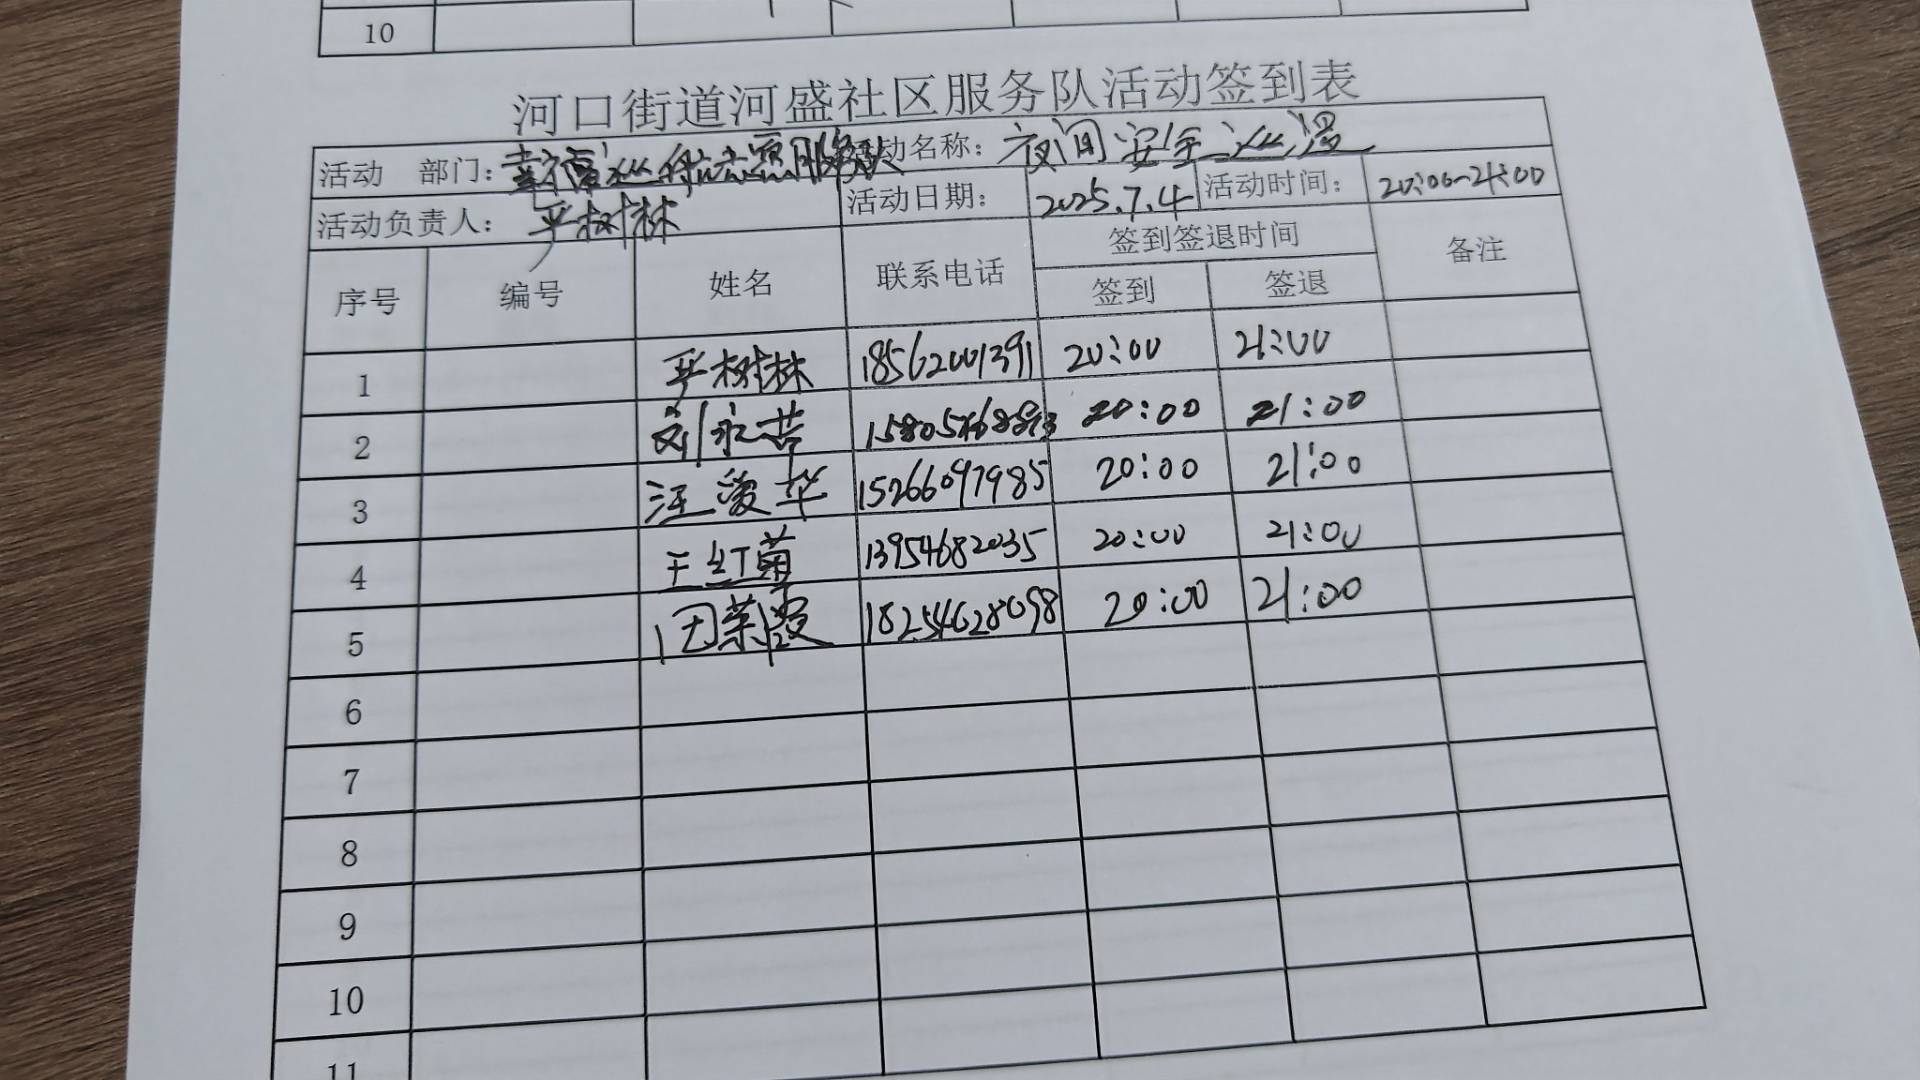 10
河口街道河盛社区服务队活动签到表
活动 部门： 活动名称：夜间安全巡逻
活动负责人：严树林 活动日期：2025.7.4 活动时间：20:00~21:00
序号 编号 姓名 联系电话 签到签退时间 备注
签到 签退
1 严树林 18562001391 20:00 21:00
2 20:00 21:00
3 15266097985 20:00 21:00
4 王红菊 13954682035 20:00 21:00
5 18254628098 20:00 21:00
6
7
8
9
10
11